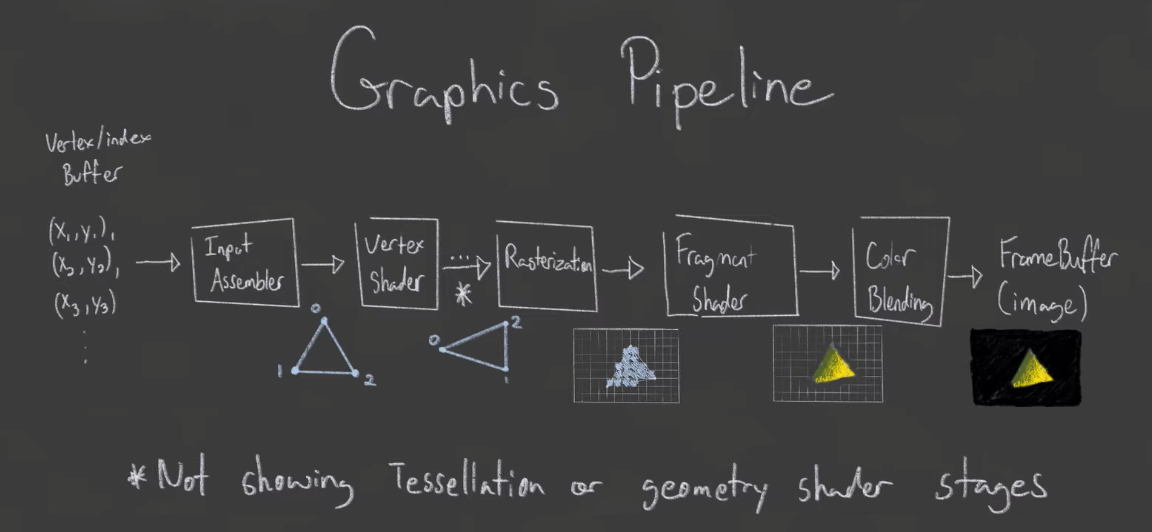 Graphics Pipeline
Vertex/index
Buffer
(x₁,y₁),
(x₂,y₂),
(x₃,y₃)
⋮
Input
Assembler
Vertex
Shader
...
*
Rasterization
Fragment
Shader
Color
Blending
FrameBuffer
(image)
0
1
2
0
2
1
*Not showing Tessellation or geometry shader stages